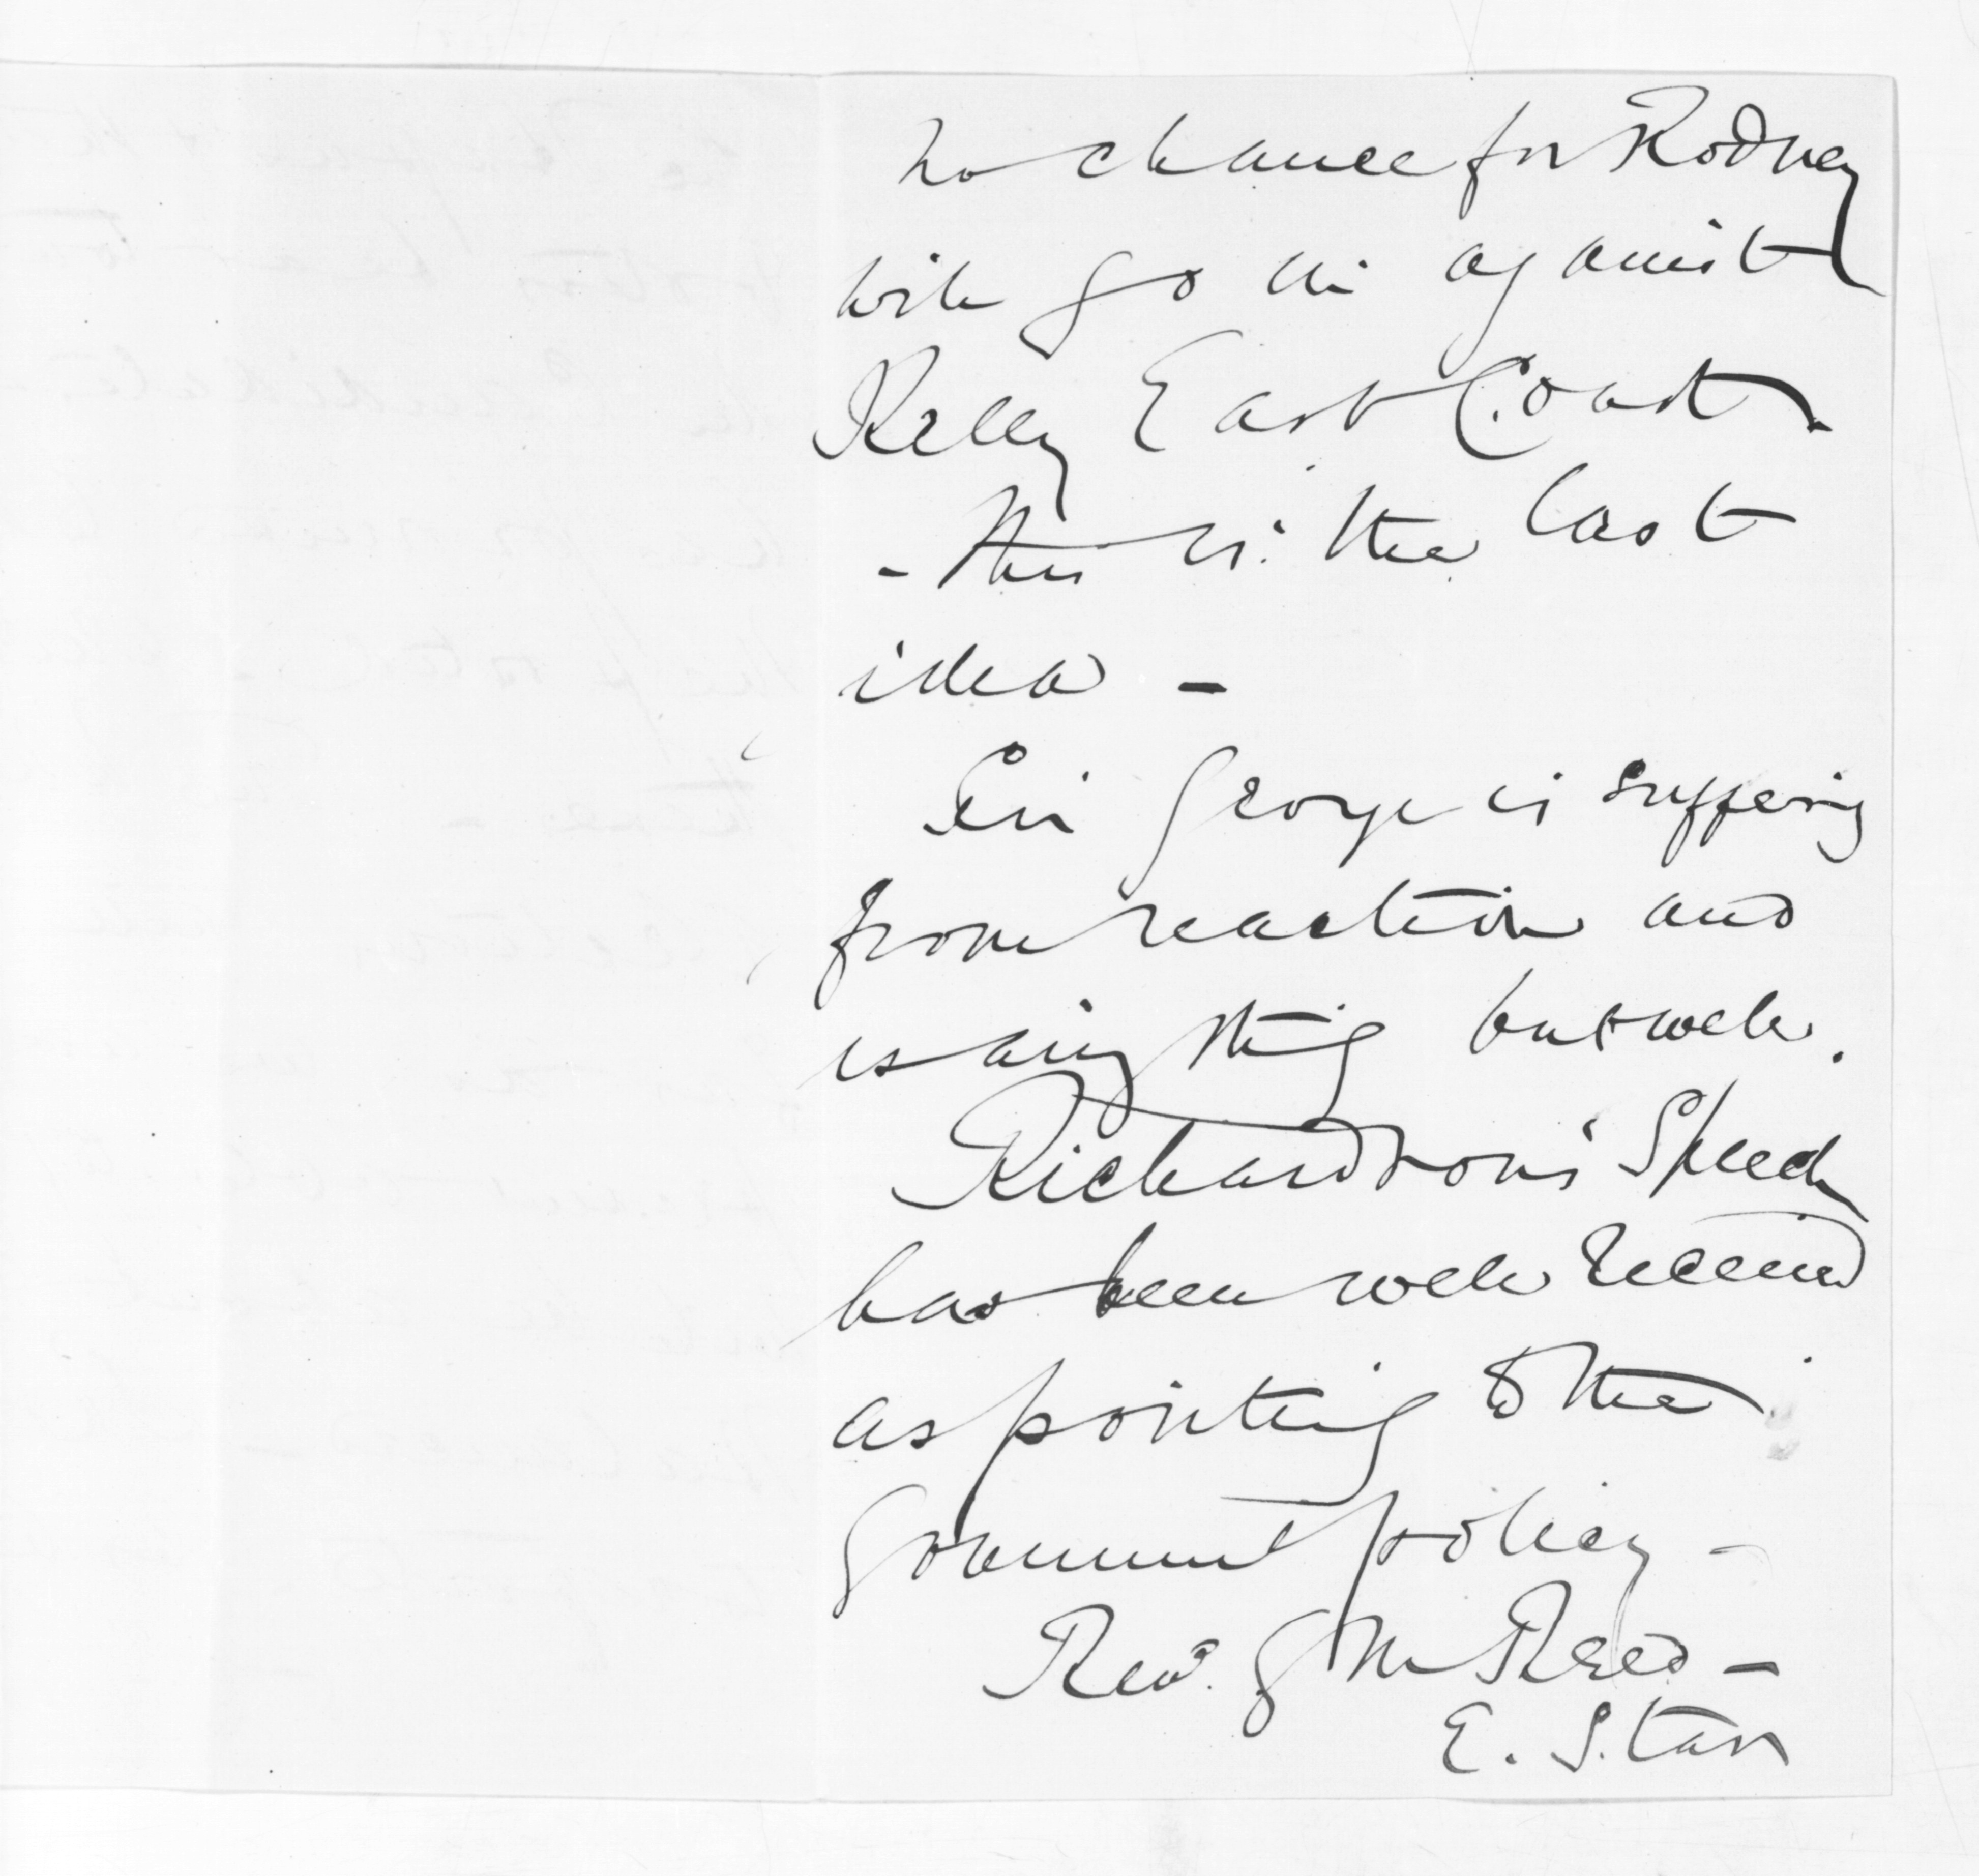 no chance for Rodney
will go in against
Kelly East Coast.
- this is the last
idea -
Sir George is suffering
from reaction and
is any thing but well.
Richardson's Speech
has been well received
as pointing to the
Government policy -
Revd. G M Reed -
E. Star